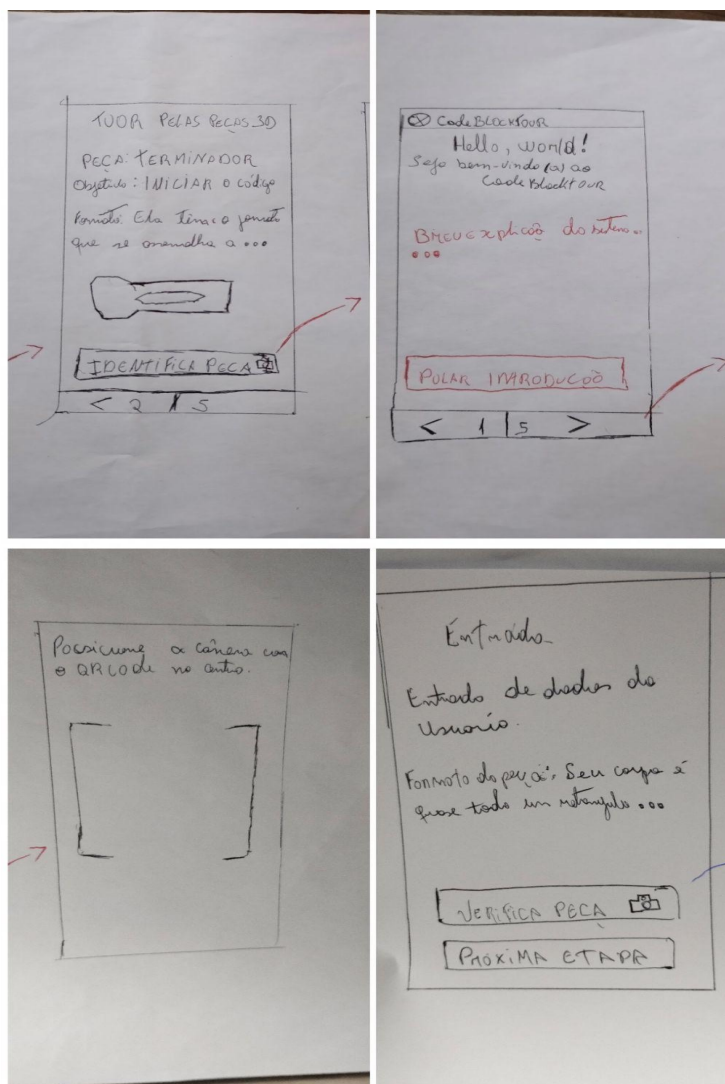 TUOR PELAS PEÇAS 3D
PEÇA: TERMINADOR
Objetivo: INICIAR o código
Formato: Ela tem o formato
que se assemelha a ...
IDENTIFICA PEÇA
< 2 / 5
CodeBLOCKTOUR
Hello, world!
Seja bem-vindo(a) ao
CodeBlockTOUR
BREVE explicação do sistema...
...
PULAR INTRODUÇÃO
< 1 | 5 >
Possicione a câmera com
o QRCode no centro.
Entrada
Entrada de dados do
Usuario.
Formato da peça: Seu corpo é
quase todo um retangulo ...
VERIFICA PEÇA
PRÓXIMA ETAPA